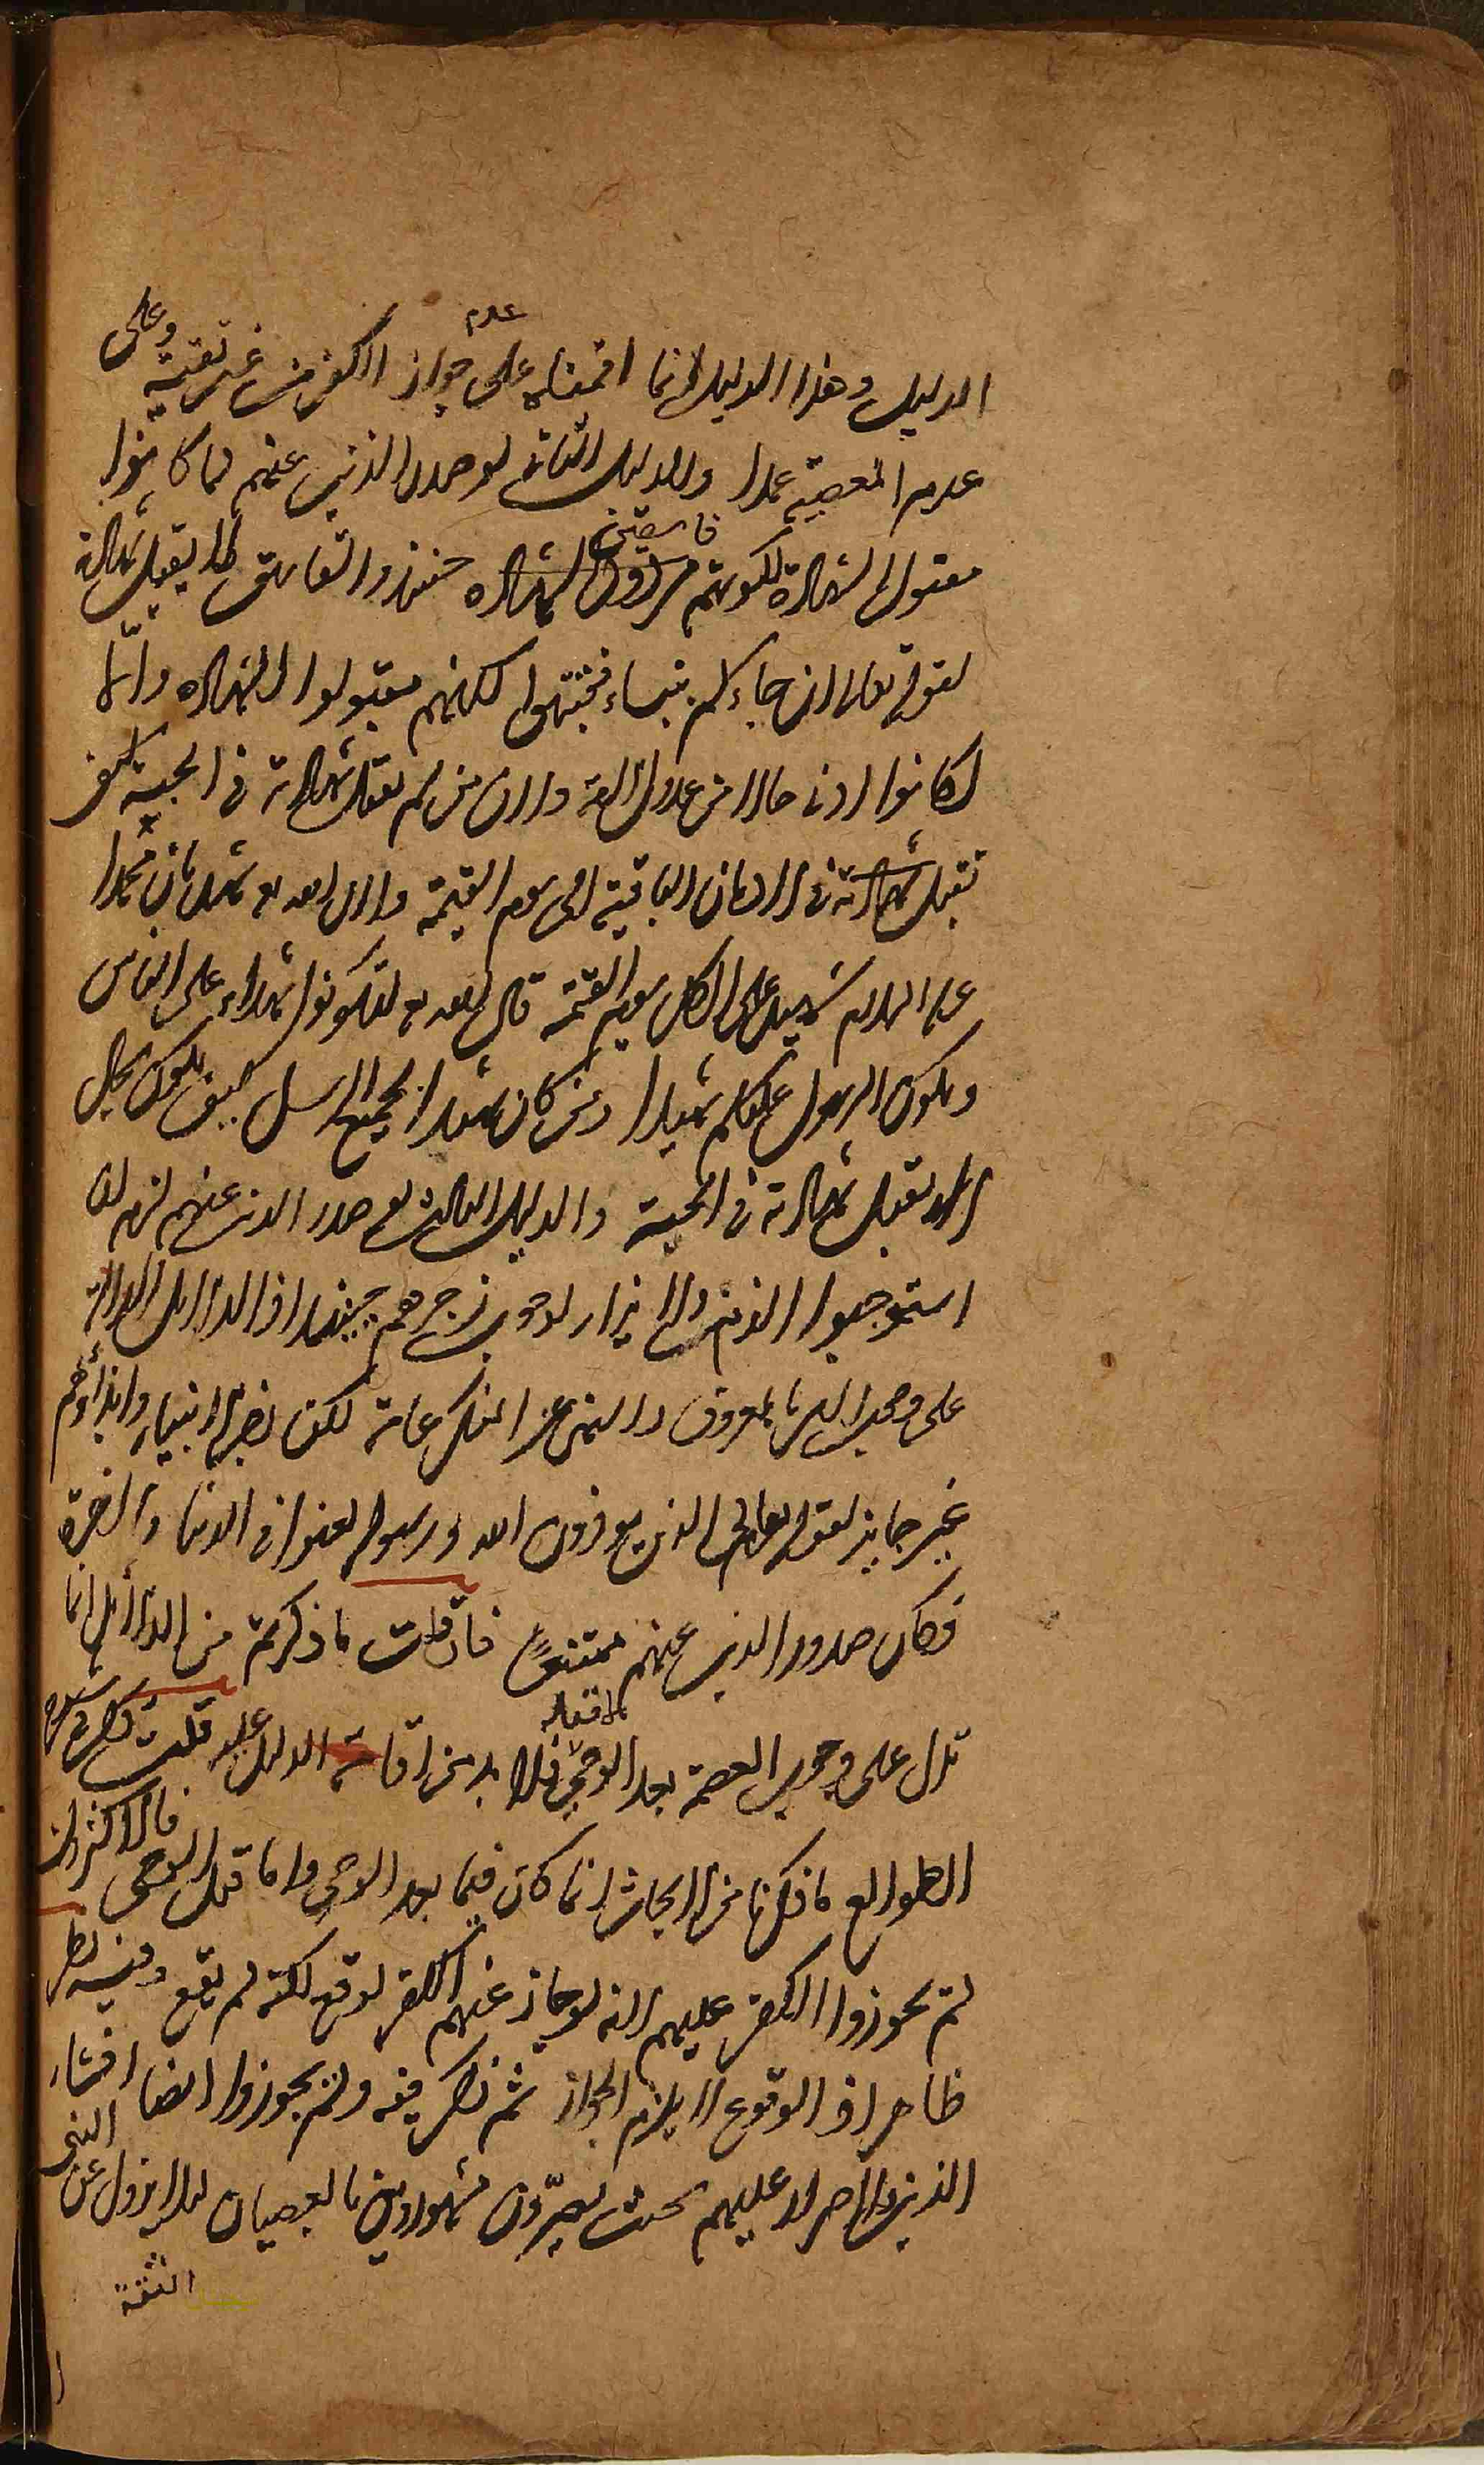 الدليل وهذا الدليل انما اقمناه على عدم جواز الكفر من غير تقية وعلى
عدم المعصية عمدا والدليل الثانى لو صدر الذنب عنهم لما كانوا
مقبول الشهادة لكونهم فاسقين حينئذ والفاسق لا يقبل شهادته
لقوله تعالى ان جاءكم بنباء فتثبتوا لكنهم مقبولوا الشهادة والا
لكانوا ادنى حالا من عدول الامة ولان من لم تقبل شهادته فى الحبة كيف
تقبل شهادته فى الاديان الباقية الى يوم القيمة ولان الله تع شهد بان محمدا
عليه السلام شهيد على الكل يوم القيمة قال الله تع لتكونوا شهداء على الناس
ويكون الرسول عليكم شهيدا ومن كان شهيدا لجميع الرسل كيف يكون بحال
لا تقبل شهادته فى الحبة والدليل الثالث لو صدر الذنب عنهم لزم ان
استوجبوا الذم والايذاء لوجوب زجرهم حينئذ اذ الدلائل الدالة
على وجوب الامر بالمعروف والنهى عن المنكر عامة لكن زجر الانبياء وايذاؤهم
غير جايز لقوله تعالى الذين يوذون الله ورسوله لعنوا فى الدنيا والاخرة
فكان صدور الذنب عنهم ممتنعا فان قلت ما ذكرتم من الدلائل انما
تدل على وجوب العصمة بعد الوحى لا قبله فلا بد من اقامة الدليل عليه قلت ذكر فى شرح
الطوالع ما ذكرنا من الابحاث انما كان فيما بعد الوحى واما قبل الوحى فالاكثرون
لم يجوزوا الكفر عليهم لانه لو جاز عنهم الكفر لوقع لكنه لم يقع وفيه نظر
ظاهر اذ الوقوع لا يلزم الجواز ثم ذكر فيه ولم يجوزوا ايضا افشاء
الذنب والاصرار عليهم بحيث يصيرون مشهورين بالعصيان لئلا يزول عن النبى
الثقة